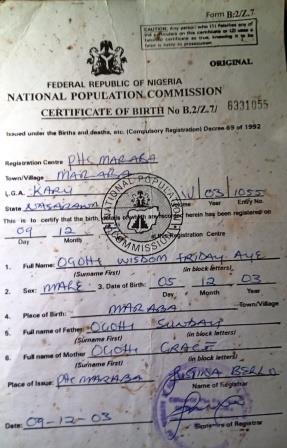 Form B.2/Z.7
CAUTION: Any person who (1) falsifies any of the particulars on this certificate or (2) uses a falsified certificate as true, knowing it to be false is liable to prosecution.
ORIGINAL
FEDERAL REPUBLIC OF NIGERIA
NATIONAL POPULATION COMMISSION
CERTIFICATE OF BIRTH No B.2/Z.7/ 6331055
Issued under the Births and deaths, etc. (Compulsory Registration) Decree 69 of 1992
Registration Centre PHC MARABA
Town/Village MARABA
L.G.A. KARU 03 1055
State NASARAWA Year Entry No.
This is to certify that the birth, details of which are herein has been registered on
09 12 at this Registration Centre
Day Month
NATIONAL POPULATION COMMISSION
1. Full Name: OGOHI WISDOM FRIDAY AYE
(Surname First) (in block letters)
2. Sex: MALE 3. Date of Birth: 05 12 03
Day Month Year
4. Place of Birth: MARABA Town/Village
5. Full name of Father OGOHI SUNDAY
(Surname First) (in block letters)
6. Full name of Mother OGOHI GRACE
(Surname First) (in block letters)
Place of Issue: PHC MARABA JUSTINA
Name of Registrar
Date: 09-12-03
Signature of Registrar